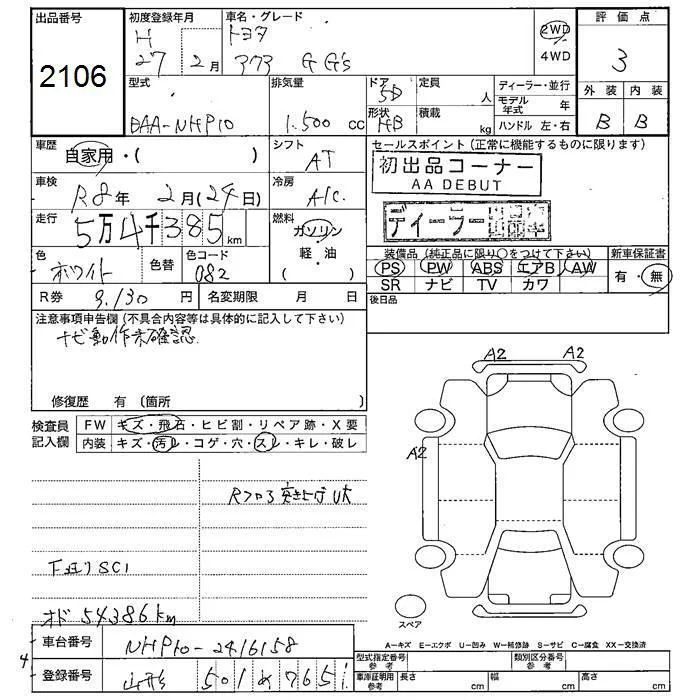 出品番号
2106
初度登録年月
H
27 年 2 月
車名・グレード
トヨタ
アクア G G's
2WD
4WD
評価点
3
外装 内装
B B
型式
DAA-NHP10
排気量
1.500 cc
ドア 5D
形状 HB
定員 人
積載 kg
ディーラー・並行
モデル年式 年
ハンドル 左・右
車歴 自家用・( )
シフト AT
車検 R8年 2月(24日)
冷房 A/C
走行 5万4千385km
燃料 ガソリン
軽・油
色 ホワイト
色替
色コード 082
R券 9,130 円
名変期限 月 日
セールスポイント(正常に機能するものに限ります)
初出品コーナー
AA DEBUT
ディーラー
装備品(純正品に限り○をつけて下さい)
新車保証書
PS PW ABS エアB AW
SR ナビ TV カワ
有・無
後日品
注意事項申告欄(不具合内容等は具体的に記入して下さい)
ナビ動作未確認
修復歴 有(箇所 )
検査員
記入欄
FW キズ・飛石・ヒビ割・リペア跡・X要
内装 キズ・汚レ・コゲ・穴・スレ・キレ・破レ
Rフロア突き上げU大
下廻りSC1
オド 54386km
A2 A2
A2
スペア
A-キズ E-エクボ U-凹み W-補修跡 S-サビ C-腐食 XX-交換済
車台番号 NHP10-2416158
登録番号 山形 501 め 7651
型式指定番号
参考
類別区分番号
参考
車庫証明用
参考
長さ cm 幅 cm 高さ cm